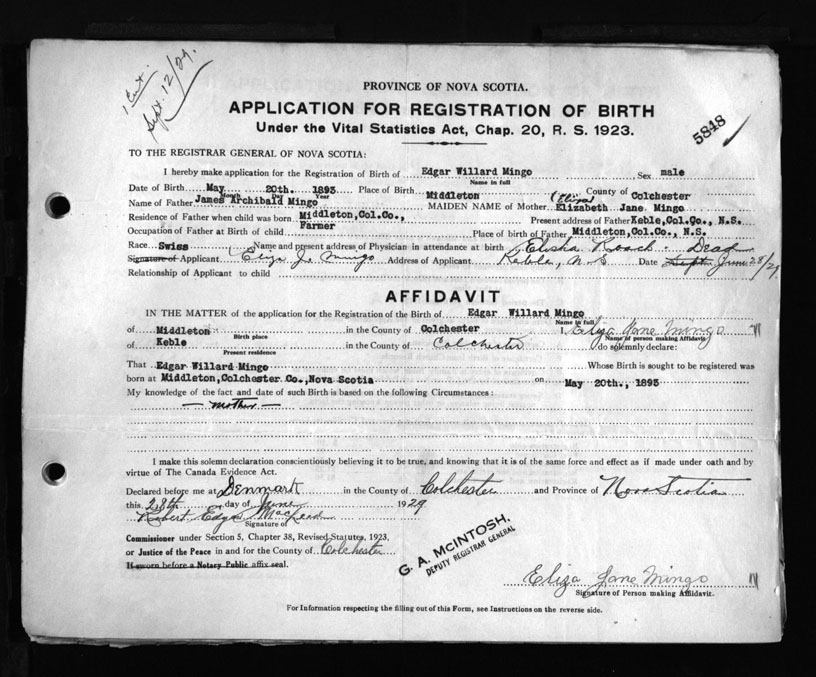 1 Cert.
Sept. 12/29.
PROVINCE OF NOVA SCOTIA.
APPLICATION FOR REGISTRATION OF BIRTH
Under the Vital Statistics Act, Chap. 20, R. S. 1923.
5848
TO THE REGISTRAR GENERAL OF NOVA SCOTIA:
I hereby make application for the Registration of Birth of Edgar Willard Mingo Sex male
Name in full
Date of Birth May 20th. 1893 Place of Birth Middleton County of Colchester
Month Day Year
(Eliza)
Name of Father James Archibald Mingo MAIDEN NAME of Mother Elizabeth Jane Mingo
Residence of Father when child was born Middleton,Col.Co., Present address of Father Keble,Col.Co., N.S.
Occupation of Father at Birth of child Farmer Place of birth of Father Middleton,Col.Co., N.S.
Race Swiss Name and present address of Physician in attendance at birth Elisha Roach. Dead
Signature of Applicant Eliza J. Mingo Address of Applicant Keble, N.S Date Sept. June 28/29
Relationship of Applicant to child
AFFIDAVIT
IN THE MATTER of the application for the Registration of the Birth of Edgar Willard Mingo
Name in full
of Middleton in the County of Colchester I, Eliza Jane Mingo
Birth place Name of person making Affidavit
of Keble in the County of Colchester do solemnly declare:
Present residence
That Edgar Willard Mingo Whose Birth is sought to be registered was
born at Middleton,Colchester Co.,Nova Scotia on May 20th., 1893
My knowledge of the fact and date of such Birth is based on the following Circumstances:
— mother —
I make this solemn declaration conscientiously believing it to be true, and knowing that it is of the same force and effect as if made under oath and by
virtue of The Canada Evidence Act.
Declared before me at Denmark in the County of Colchester and Province of Nova Scotia
this 28th day of June 1929
Robert Edgar MacLeod
Signature of
Commissioner under Section 5, Chapter 38, Revised Statutes, 1923,
or Justice of the Peace in and for the County of Colchester
If sworn before a Notary Public affix seal.
G. A. McINTOSH,
DEPUTY REGISTRAR GENERAL
Eliza Jane Mingo
Signature of Person making Affidavit.
For Information respecting the filling out of this Form, see Instructions on the reverse side.